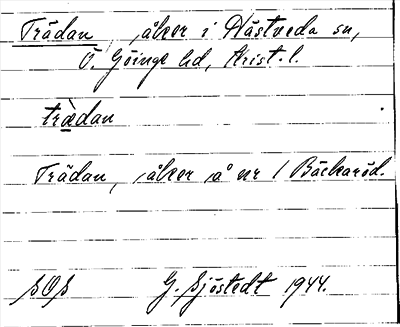 Trädan, åker i Hästveda sn,
Ö. Göinge hd, Krist. l.
trädan
Trädan, åker å nr 1 Bäckaröd.
SOS G. Sjöstedt 1944.